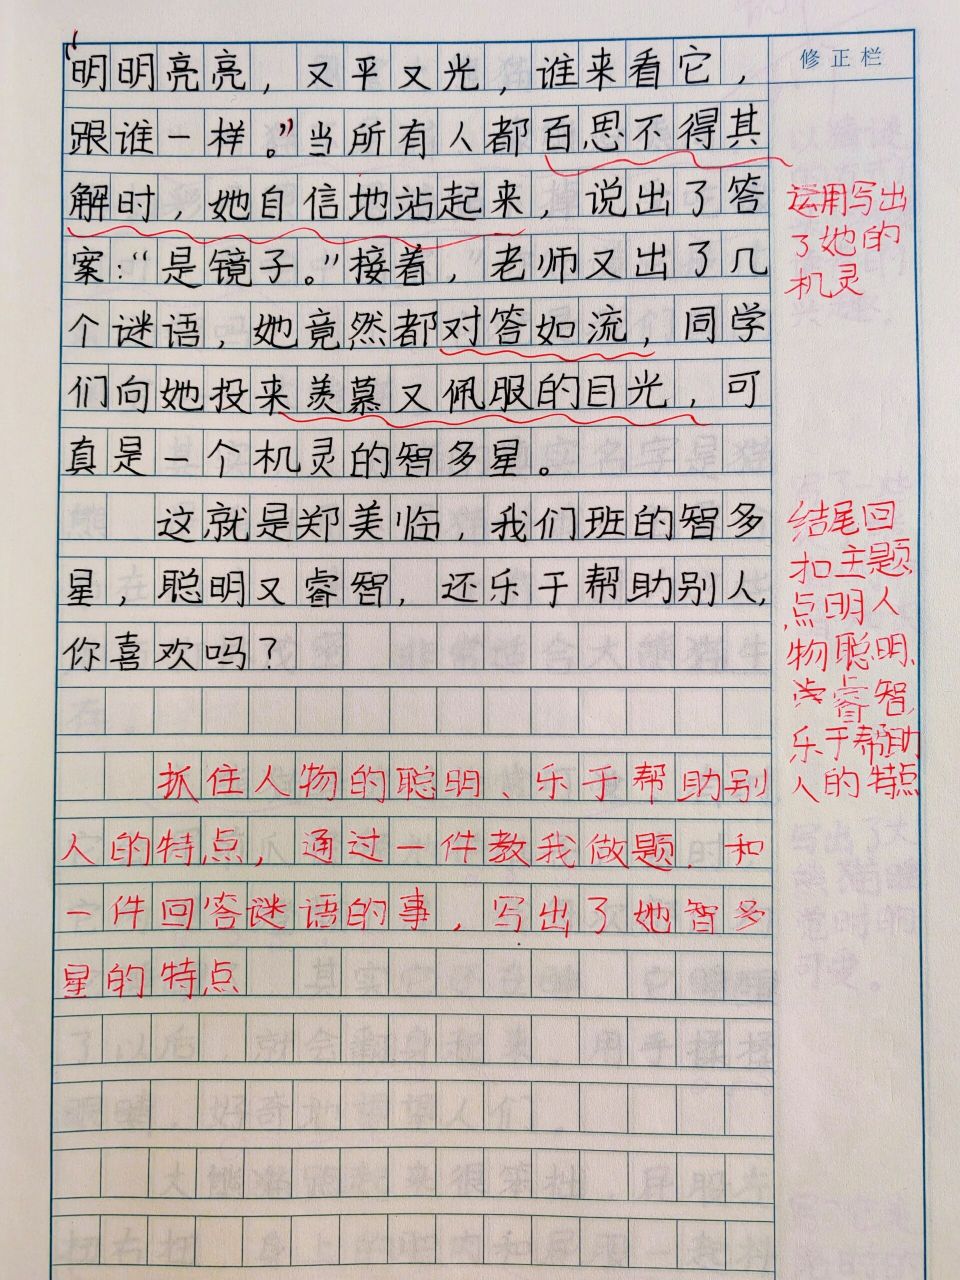 修正栏
“明明亮亮，又平又光，谁来看它，
跟谁一样。”当所有人都百思不得其
解时，她自信地站起来，说出了答
案：“是镜子。”接着，老师又出了几
个谜语，她竟然都对答如流，同学
们向她投来羡慕又佩服的目光，可
真是一个机灵的智多星。
这就是郑美临，我们班的智多
星，聪明又睿智，还乐于帮助别人，
你喜欢吗？
运用写出
了她的
机灵
结尾回
扣主题
点明人
物聪明、
睿智，
乐于帮助
人的特点
抓住人物的聪明、乐于帮助别
人的特点，通过一件教我做题，和
一件回答谜语的事，写出了她智多
星的特点